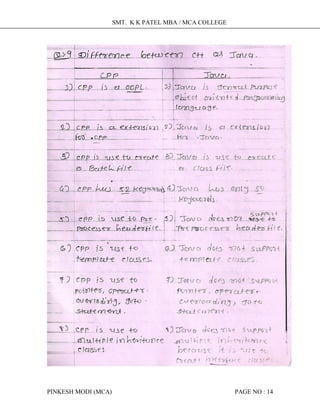 SMT. K K PATEL MBA / MCA COLLEGE
Q:9 Difference between C++ and Java.
CPP
Java.
1) CPP is a OOPL.
1) Java is General Purpose
object oriented Programming
language.
2) CPP is a extension
for .CPP
2) Java is a extension
for .Java.
3) CPP is use to create
a Batch File
3) Java is use to execute
a class file
4) CPP has 52 keywords
4) Java has only 50
keywords.
5) CPP is use to Pre-
Processer headerfile.
5) Java does not support
Pre Processer header file.
6) CPP is use to
template classes.
6) Java does not support
template classes.
7) CPP is use to
pointer, operator
overloading, goto
statement.
7) Java does not support
pointer, operator
overloading, goto
statement.
8) CPP is use to
multiple inheritance
classes
8) Java does not support
multiple inheritance
because it is use to
interface
PINKESH MODI (MCA)
PAGE NO : 14